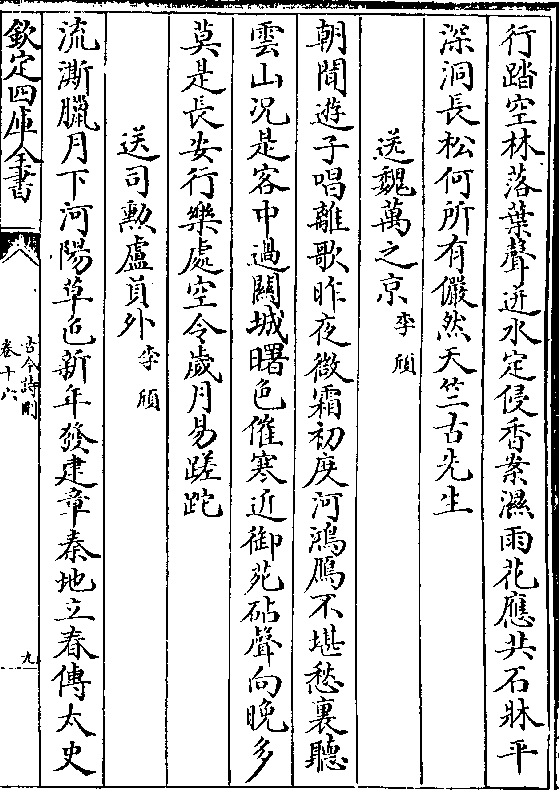 行踏空林落葉聲迸水定侵香案濕雨花應共石牀平
深洞長松何所有儼然天竺古先生
送魏萬之京李頎
朝聞遊子唱離歌昨夜微霜初度河鴻鴈不堪愁裏聽
雲山況是客中過關城曙色催寒近御苑砧聲向晚多
莫是長安行樂處空令歲月易蹉跎
送司勲盧員外李頎
流澌臘月下河陽草色新年發建章秦地立春傳太史
欽定四庫全書
古今詩刪
卷十六
九